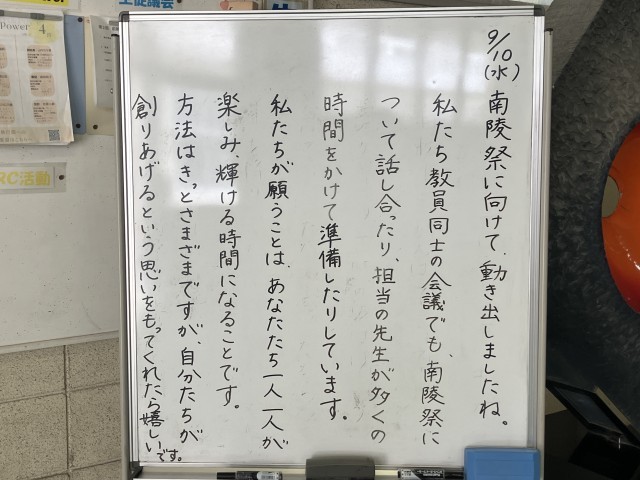 9/10(水)
南陵祭に向けて、動き出しましたね。
私たち教員同士の会議でも、南陵祭に
ついて話し合ったり、担当の先生が多くの
時間をかけて準備したりしています。
私たちが願うことは、あなたたち一人一人が
楽しみ、輝ける時間になることです。
方法はきっとさまざまですが、自分たちが
創りあげるという思いをもってくれたら嬉しいです。
Power
4
RC活動